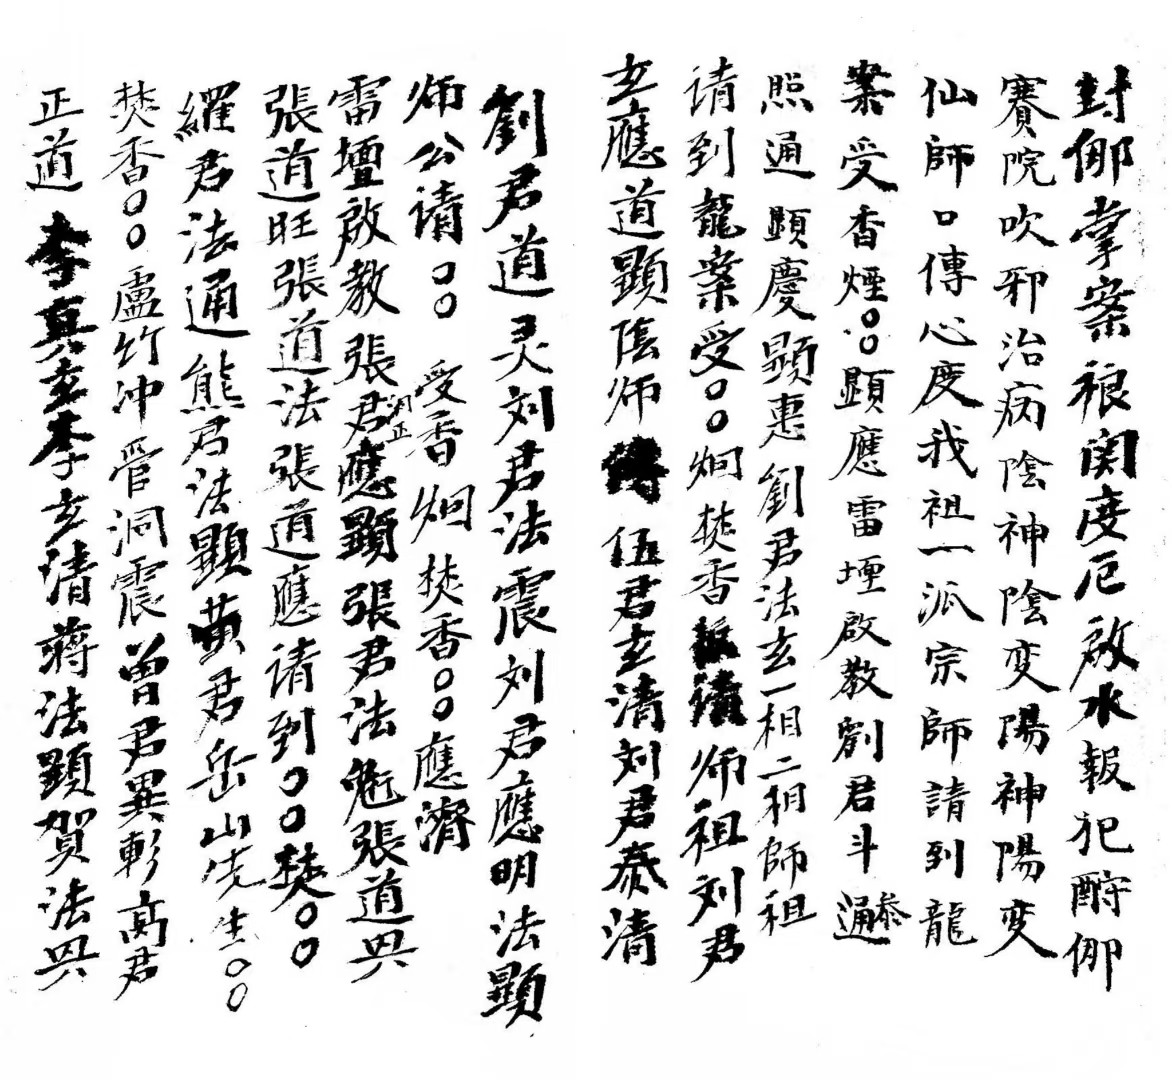 封𠇔掌案禳関度厄啟水報犯酧𠇔
賽院吹邪治病陰神陰变陽神陽变
仙師口傳心度我祖一派宗師請到龍
案受香煙〇〇顕應雷壇啟教劉君斗通叅
照通顕慶顕惠劉君法玄一相二相師祖
请到龍案受〇〇烟焚香请师祖刘君
玄應道顕陰师伍君玄清刘君泰清
劉君道灵刘君法震刘君應明法顕
师公请〇〇受香烟焚香〇〇應濟
雷壇啟教張君應顕張君法魁張道兴
張道旺張道法張道應请到〇〇焚〇〇
羅君法通熊君法顕黄君岳山先生〇〇
焚香〇〇盧竹冲管洞震曾君異彰高君
正道李真玄李玄清蒋法顕贺法兴